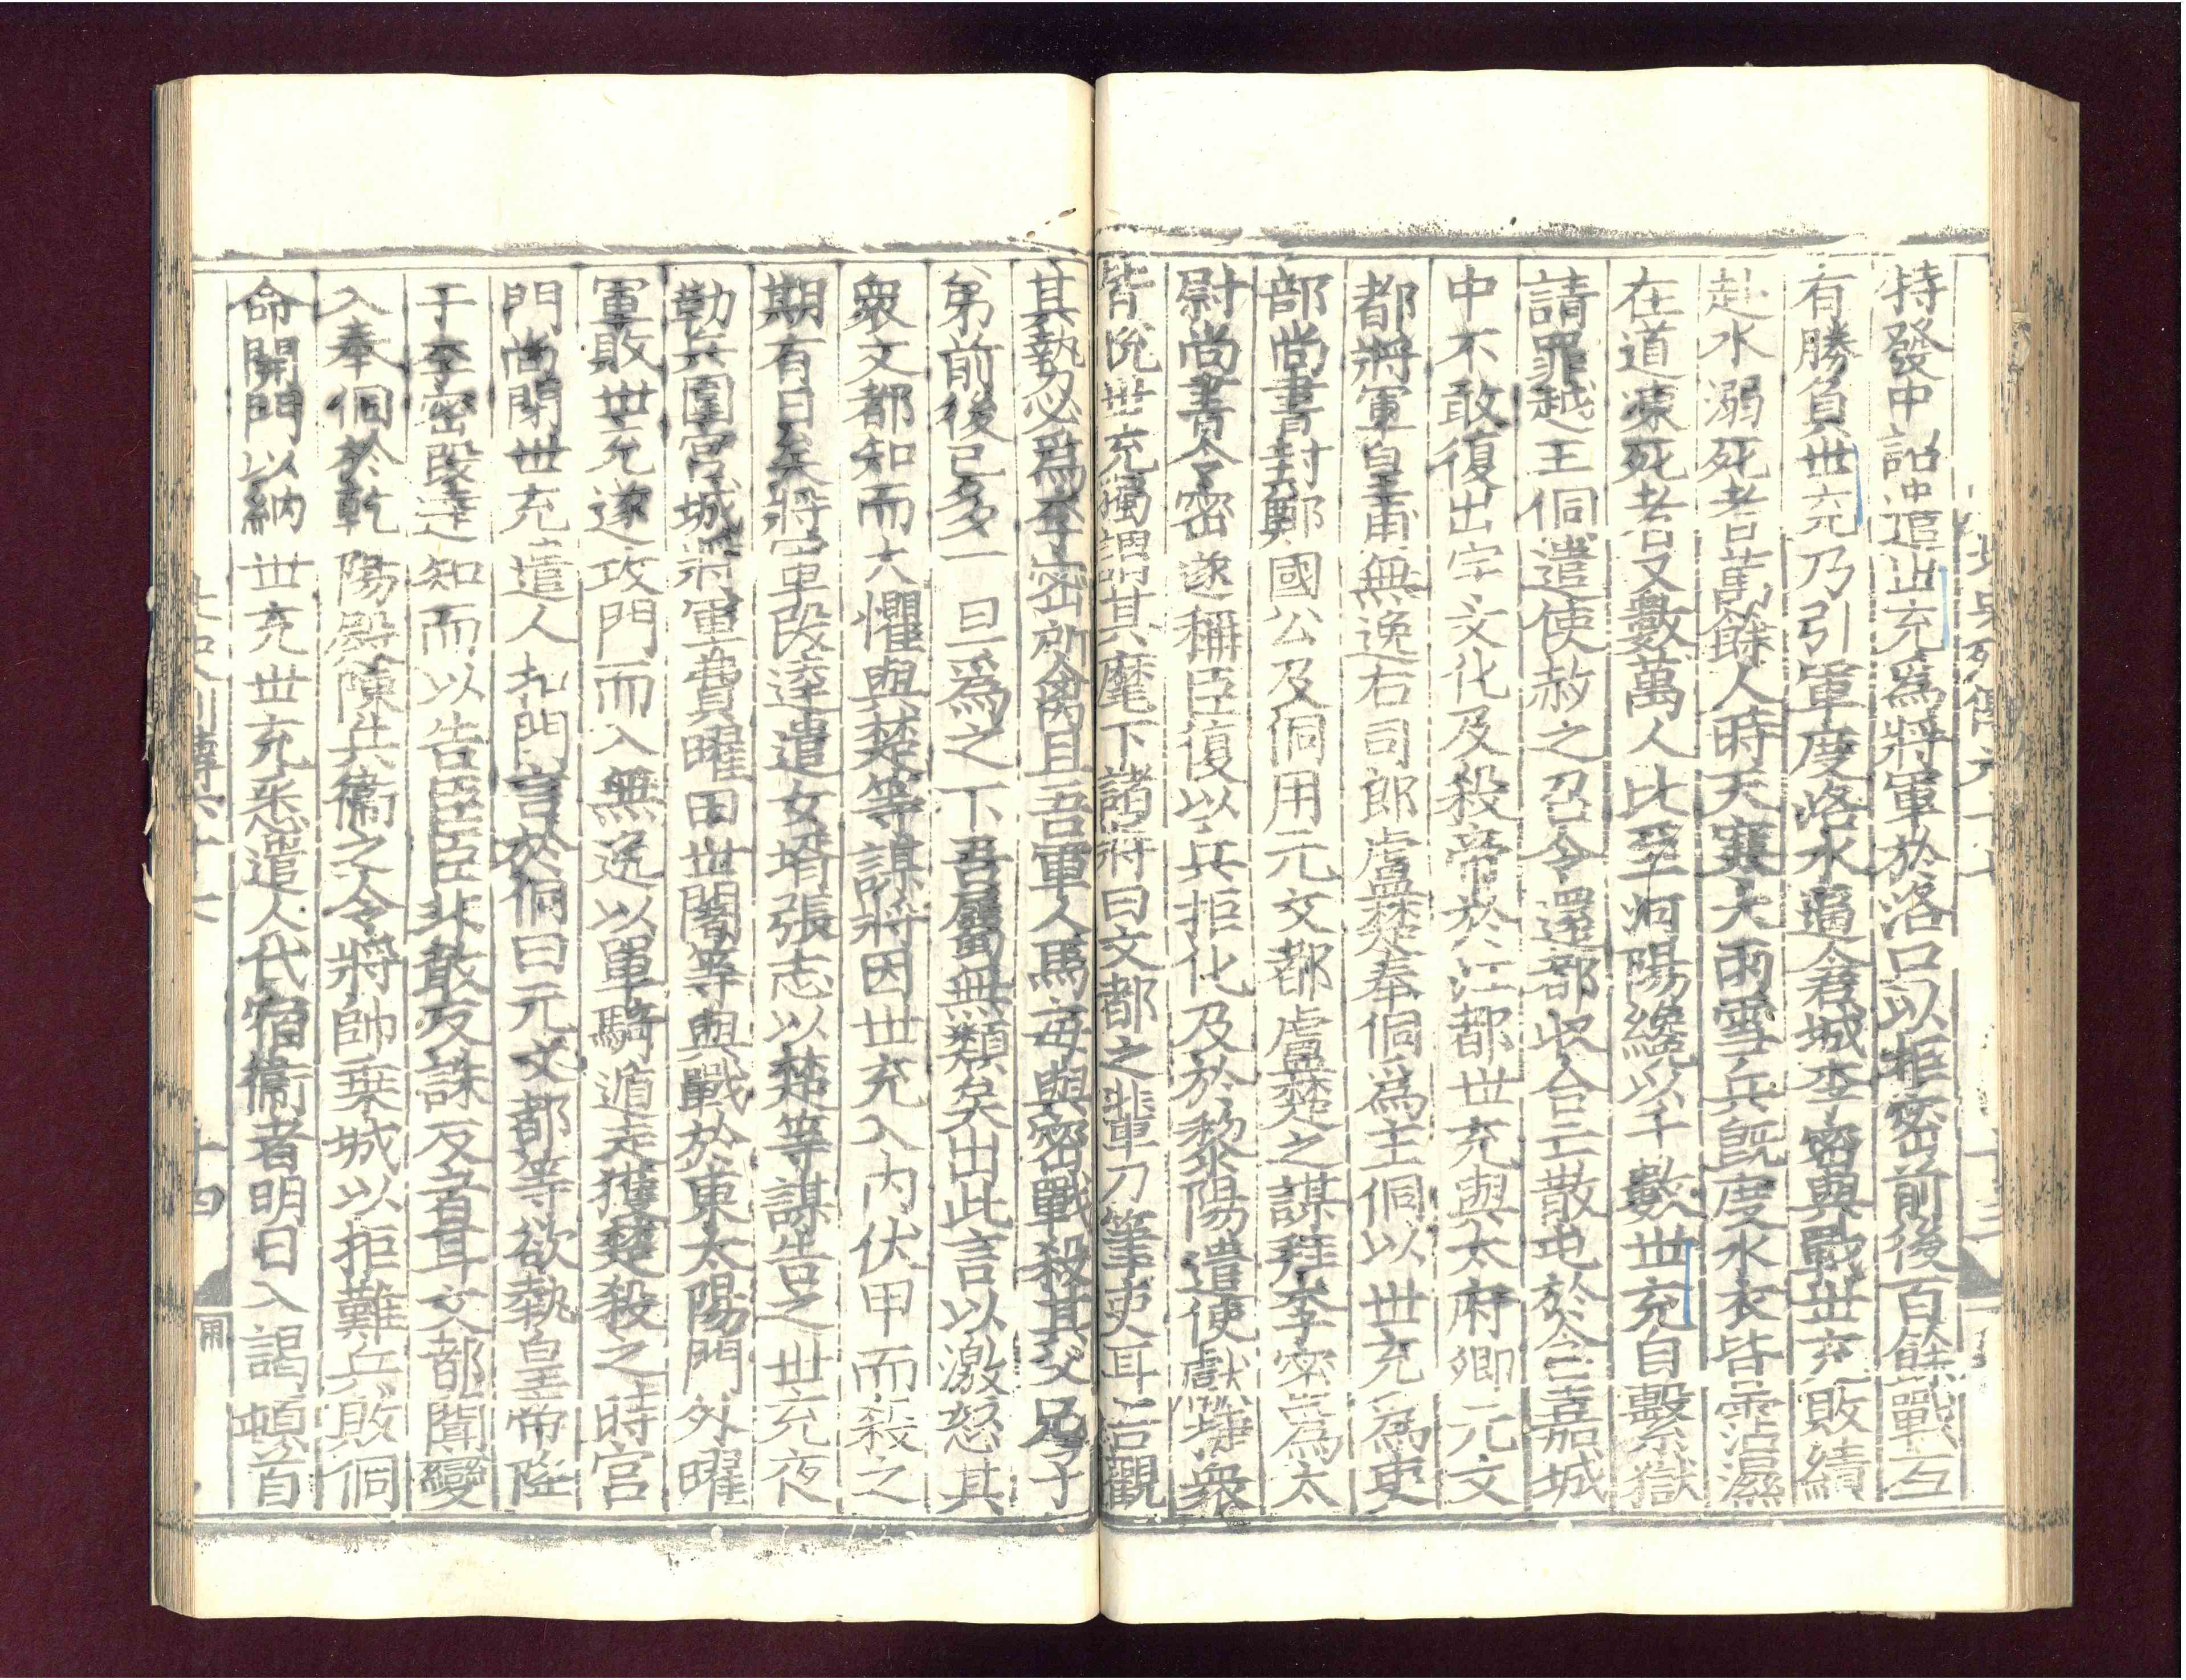 特發中詔遣世充爲將軍於洛口以拒密前後百餘戰互
有勝負世充乃引軍度洛水逼倉城李密與戰世充敗績
赴水溺死者萬餘人時天寒大雨雪兵旣度水衣皆霑濕
在道凍死者又數萬人比至河陽纔以千數世充自繫獄
請罪越王侗遣使赦之召令還都收合亡散屯於含嘉城
中不敢復出宇文化及殺帝於江都世充與太府卿元文
都將軍皇甫無逸右司郎盧楚奉侗爲主侗以世充爲吏
部尚書封鄭國公及侗用元文都盧楚之謀拜李密爲太
尉尚書令密遂稱臣復以兵拒化及於黎陽遣使獻捷衆
皆悅世充獨謂其麾下諸將曰文都之輩刀筆吏耳吾觀
其勢必爲李密所禽且吾軍人馬每與密戰殺其父兄子
弟前後已多一旦爲之下吾屬無類矣出此言以激怒其
衆文都知而大懼與楚等謀將因世充入内伏甲而殺之
期有日矣將軍段達遣女壻張志以楚等謀告之世充夜
勒兵圍宮城將軍費曜田世闍等與戰於東太陽門外曜
軍敗世充遂攻門而入無逸以單騎遁走獲楚殺之時宮
門尚閉世充遣人扣門言於侗曰元文都等欲執皇帝降
于李密段達知而以告臣臣非敢反誅反者耳文都聞變
入奉侗於乾陽殿陳兵衞之令將帥乗城以拒難兵敗侗
命開門以納世充世充悉遣人代宿衞者明日入謁頓首
十四